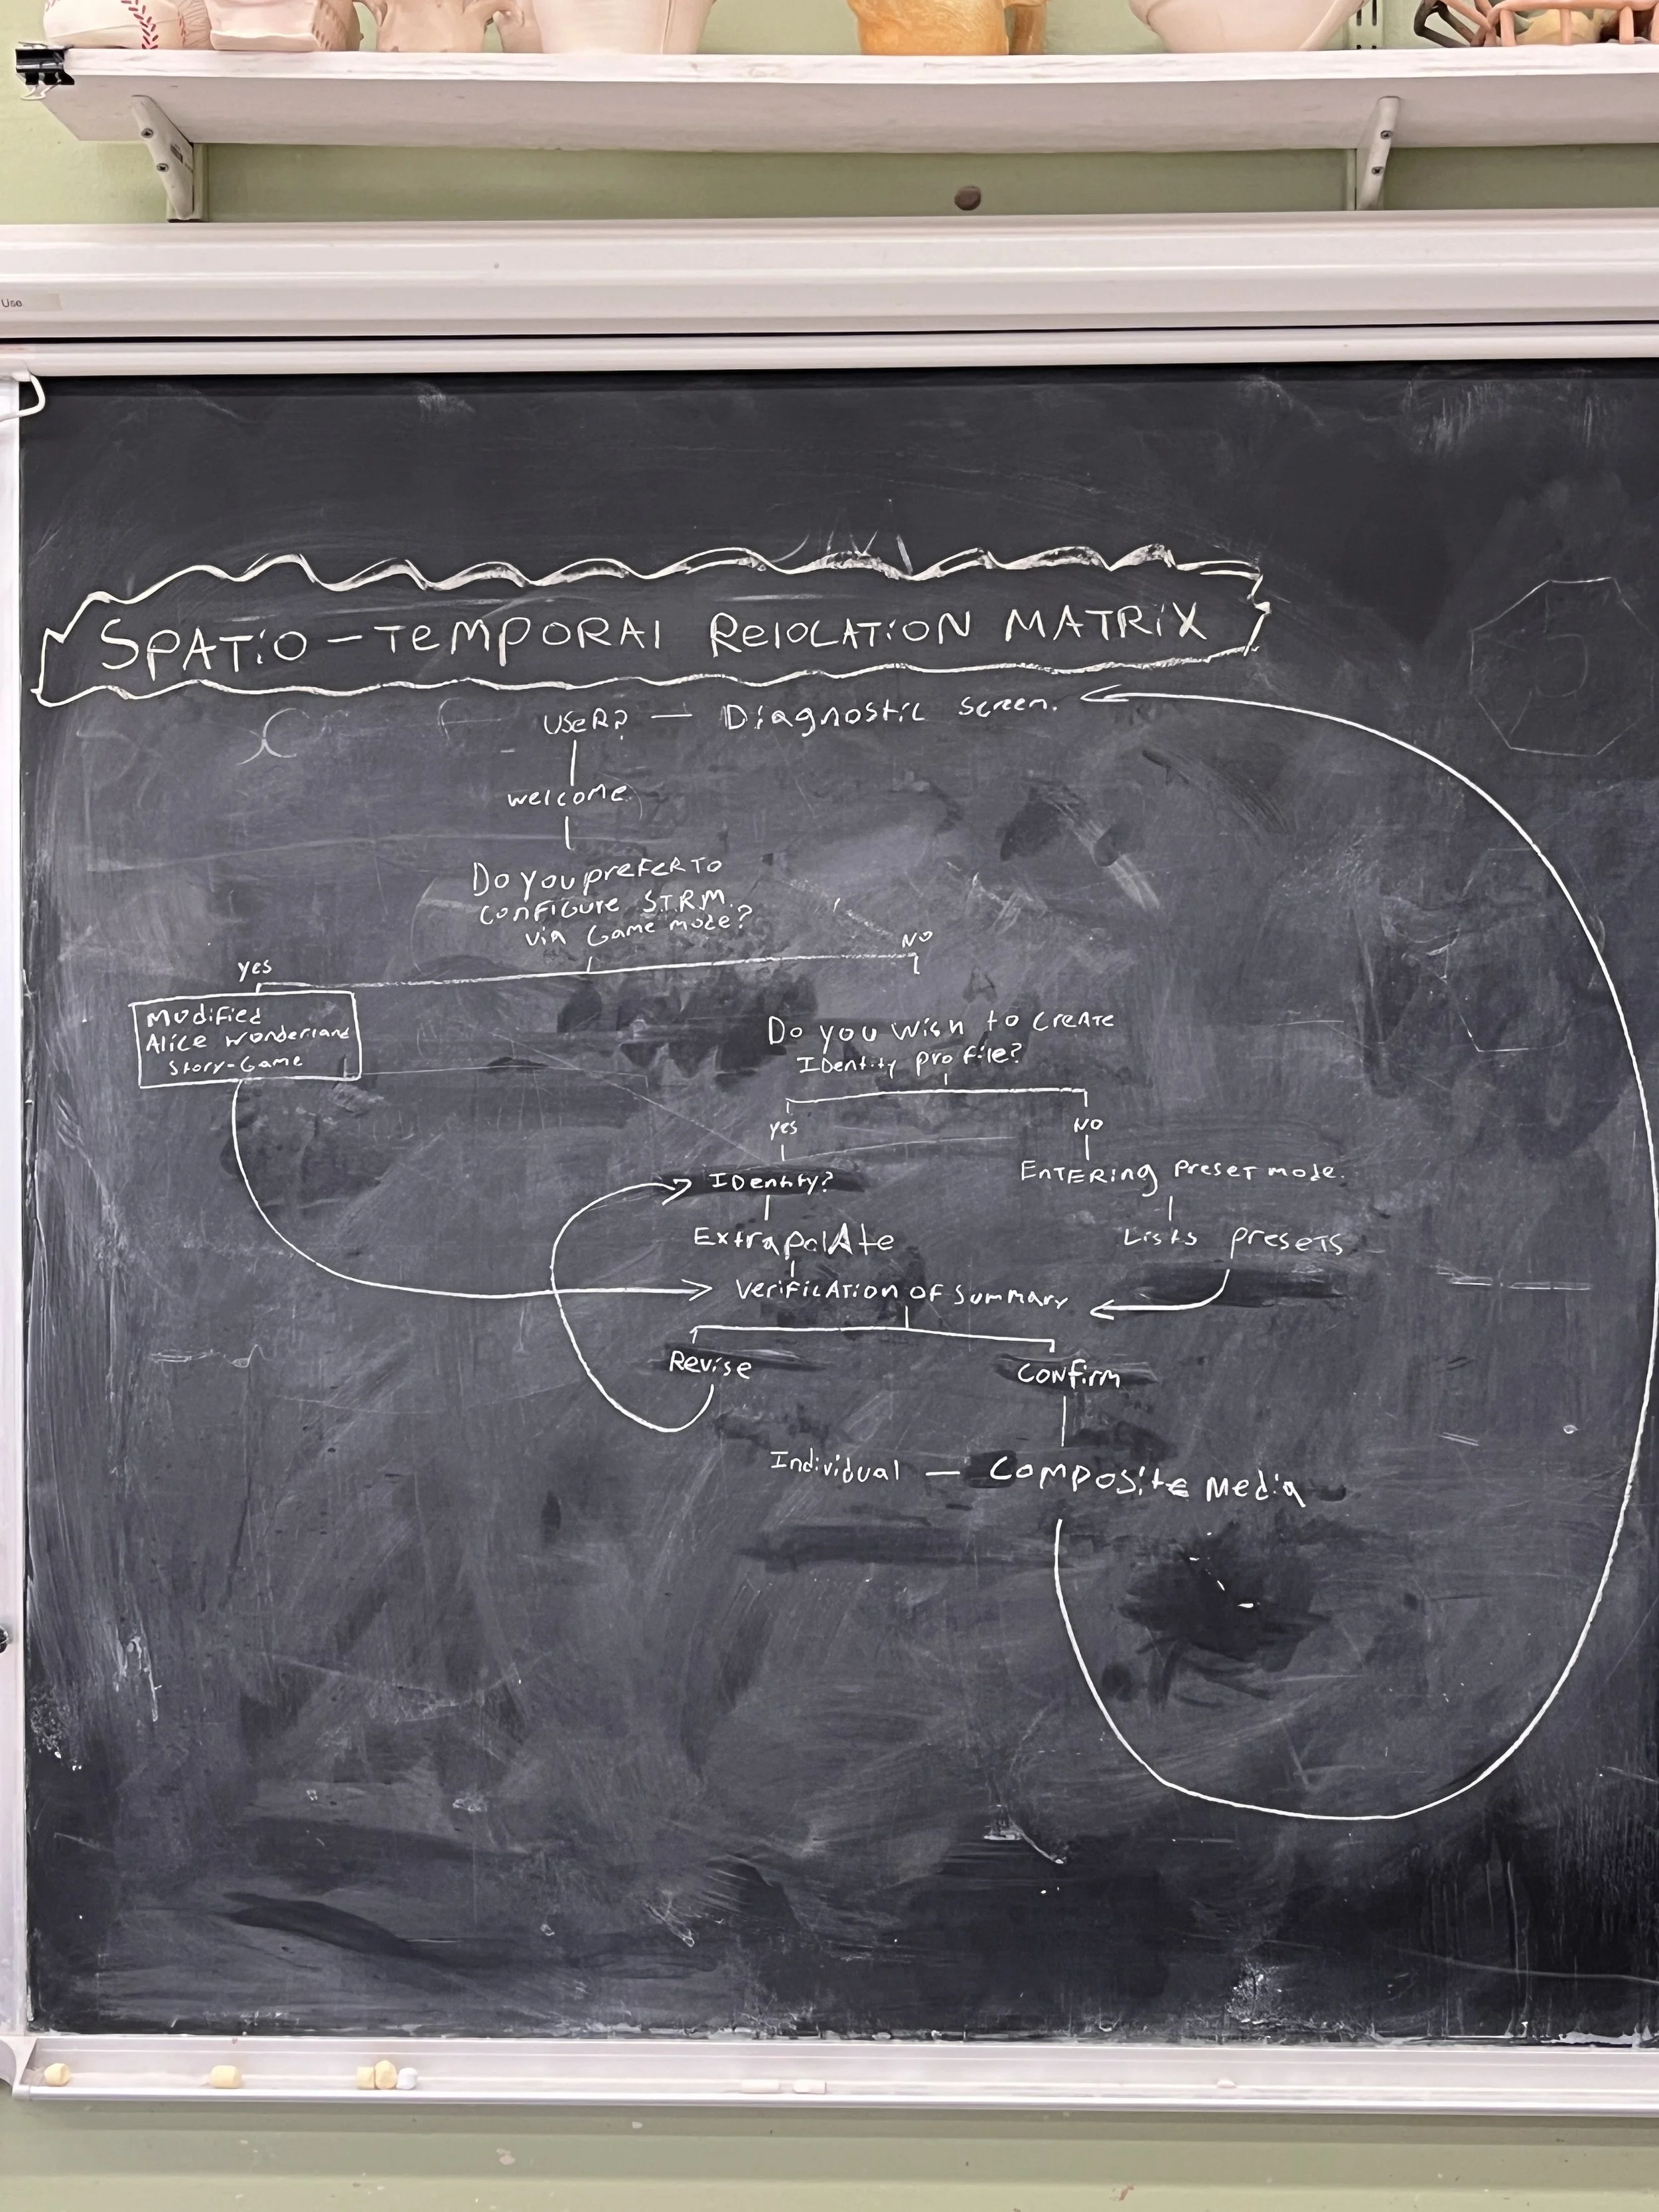 Use
SPATiO - TEMPORAl RElOLATiON MATRiX
USER? — Diagnostic screen.
welcome
Do you prefer to
configure S.T.R.M.
via Game mode?
yes
NO
Modified
Alice Wonderland
Story-Game
Do you wish to CREATE
IDentity profile?
yes
NO
IDentity?
ENTERing preset mode.
ExtrapolAte
Lists presets
VerificATion OF Summary
Revise
CONfirm
Individual — Composite Media